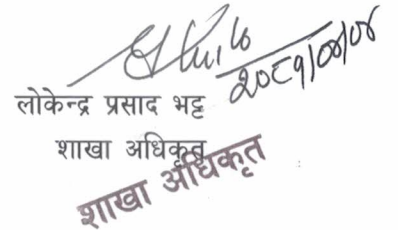 २०८१/०४/०४
लोकेन्द्र प्रसाद भट्ट
शाखा अधिकृत
शाखा अधिकृत